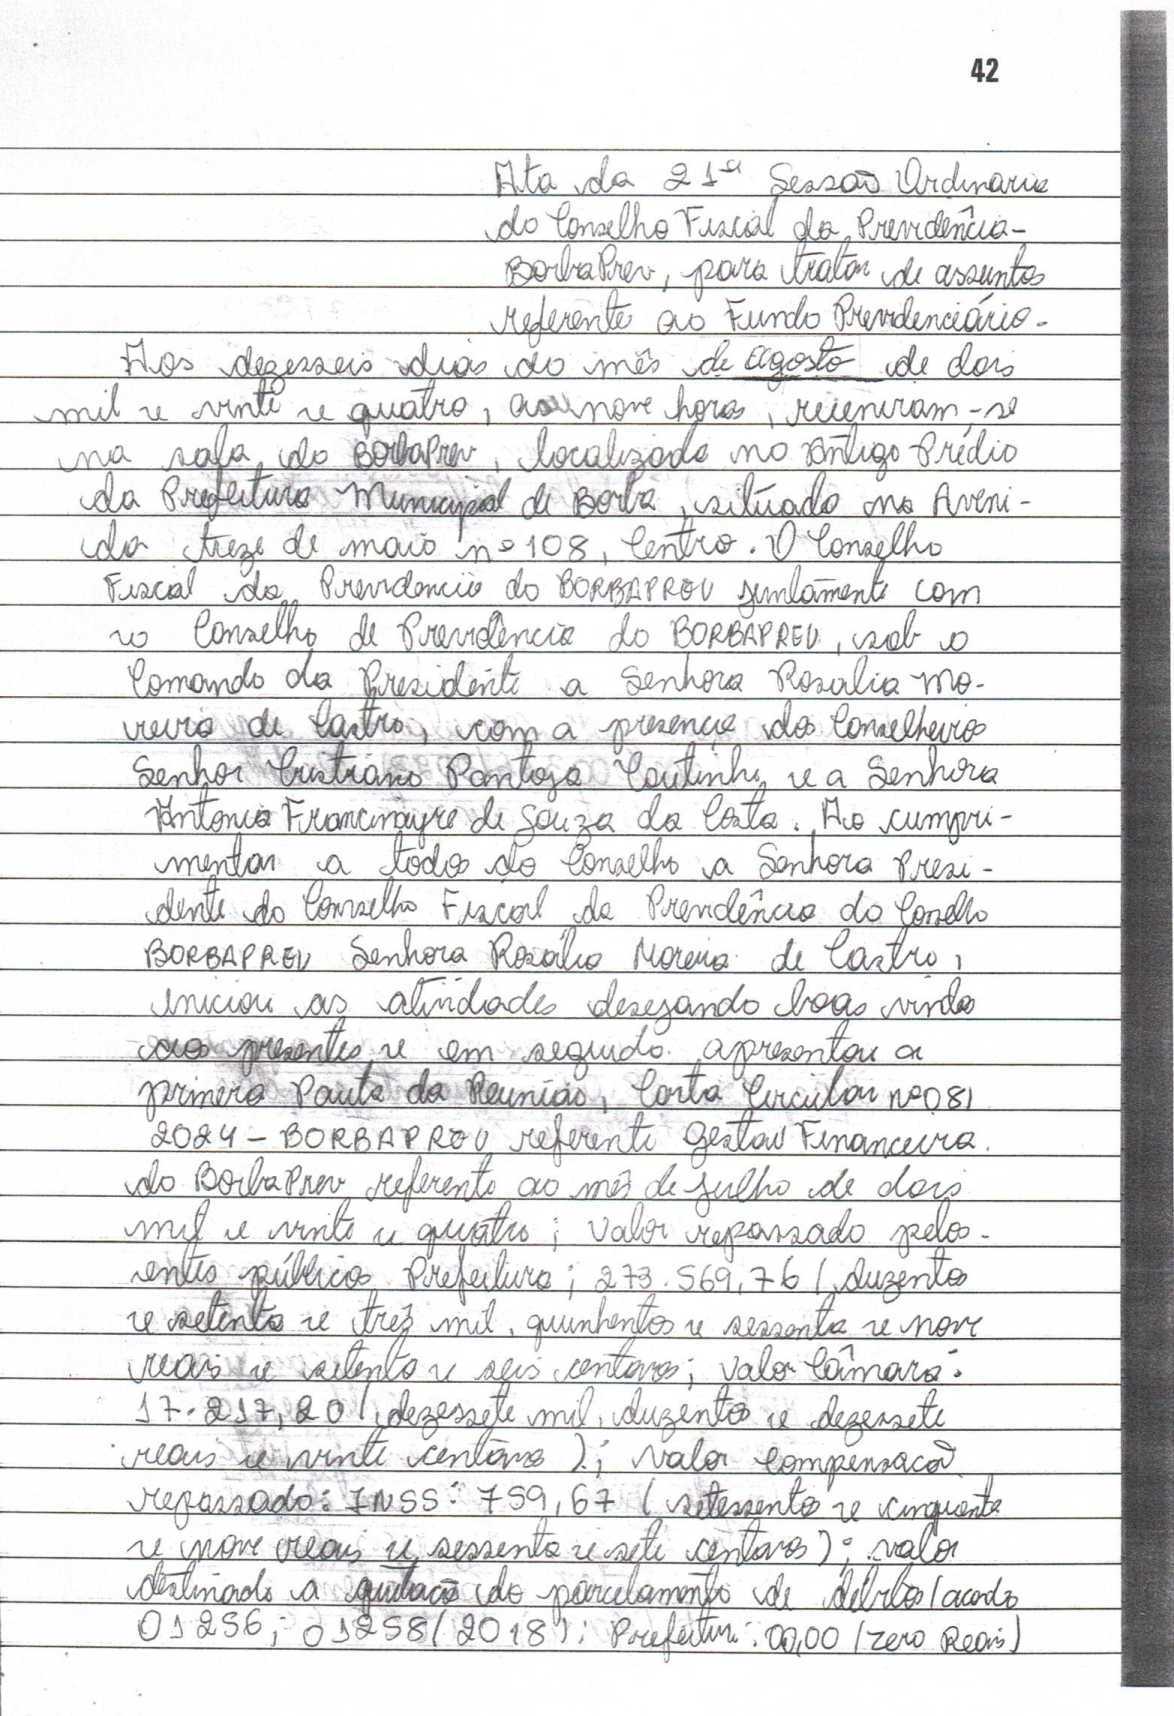 42
Ata da 21ª Sessão Ordinária
do Conselho Fiscal da Previdência-
BorbaPrev, para tratar de assuntos
referente ao Fundo Previdenciário-
Aos dezesseis dias do mês de agosto de dois
mil e vinte e quatro, as nove horas, reuniram-se
na sala do BorbaPrev, localizado no Antigo Prédio
da Prefeitura Municipal de Borba, situado na Aveni-
da treze de maio nº 108, Centro. O Conselho
Fiscal da Previdencia do BORBAPREV juntamente com
o Conselho de Previdência do BORBAPREV, sob o
Comando da Presidente a Senhora Rosalia Mo-
reira de Castro, com a presença dos Conselheiros
Senhor Cristiano Pantoja Coutinho e a Senhora
Antonia Francinayre de Souza da Costa. Ao cumpri-
mentar a todos do Conselho a Senhora Presi-
dente do Conselho Fiscal da Previdência do Conselho
BORBAPREV Senhora Rosália Moreira de Castro,
iniciou as atividades desejando boas vindas
aos presentes e em seguida apresentou a
primera Pauta da Reunião, Carta Circular nº 081
2024 - BORBAPREV referente gestão Financeira.
do BorbaPrev referente ao mês de julho de dois
mil e vinte e quatro; Valor repassado pelos-
entes públicos Prefeitura; 273.569,76 (duzentos
e setenta e três mil, quinhentos e sessenta e nove
reais e setenta e seis centavos; Valor Câmara:
17.217,20 (dezessete mil, duzentos e dezessete
reais e vinte centavos); Valor Compensação
repassado: INSS: 759,67 (setessentos e cinquenta
e nove reais e sessenta e sete centavos); valor
destinado a quitação do parcelamento de débitos (acordo
01256; 01258/2018); Prefeitura: 00,00 (zero Reais)